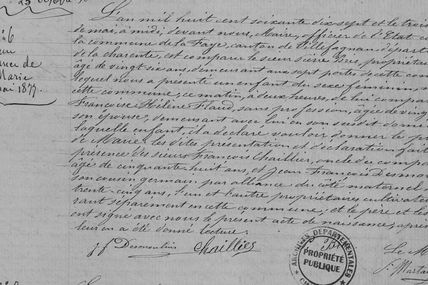 23 octobre
L'an mil huit cent soixante dix sept et le trois
de mai, à midi, devant nous, Maire, officier de l'Etat c
la commune de La Faye, canton de Villefagnan, départ
de la charente, est comparu le sieur Pierre propriéta
âgé de vingt six ans, demeurant aux sept partes de cette com
lequel nous a présenté un enfant du sexe féminin,
cette commune, ce matin, à deux heures, de lui compar
Françoise Hélène sans profession, âgée de vingt
son épouse, demeurant avec lui en son susdit domic
laquelle enfant, il a déclaré vouloir donner le pr
de Marie. Les dites présentation et déclaration fait
présence des sieurs François Chaillier, oncle du compar
âgé de cinquante huit ans, et Jean François Desmou
son cousin germain par alliance du côté maternel
trente cinq ans, l'un et l'autre propriétaires cultivate
rant séparément en cette commune; et le père et les t
ont signé avec nous le présent acte de naissance, aprè
leur en a été donné lecture.
6
Marie
mai 1877.
jf Desmoulin Chaillier
ARCHIVES DÉPARTEMENTALES
PROPRIÉTÉ
PUBLIQUE
Le M